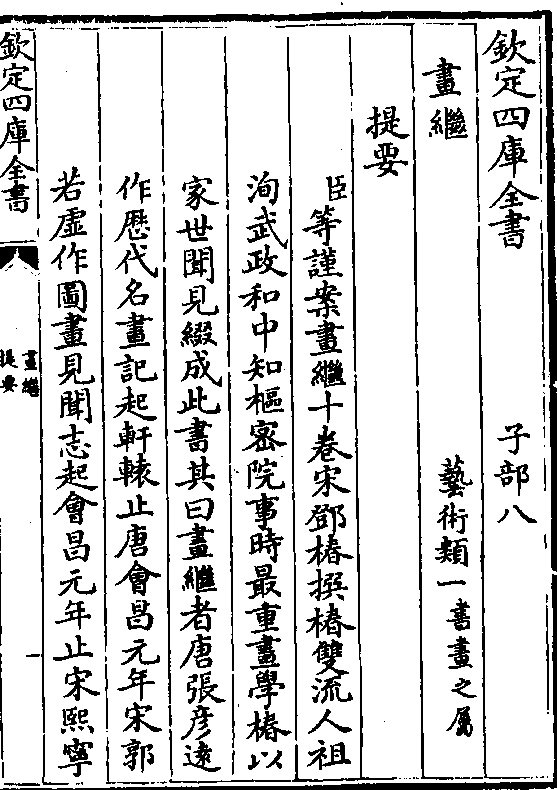 欽定四庫全書　子部八
畫繼　藝術類一書畫之屬
提要
臣等謹案畫繼十卷宋鄧椿撰椿雙流人祖
洵武政和中知樞密院事時最重畫學椿以
家世聞見綴成此書其曰畫繼者唐張彥逺
作歴代名畫記起軒轅止唐會昌元年宋郭
若虛作圖畫見聞志起會昌元年止宋熙寧
欽定四庫全書
畫繼
提要
一